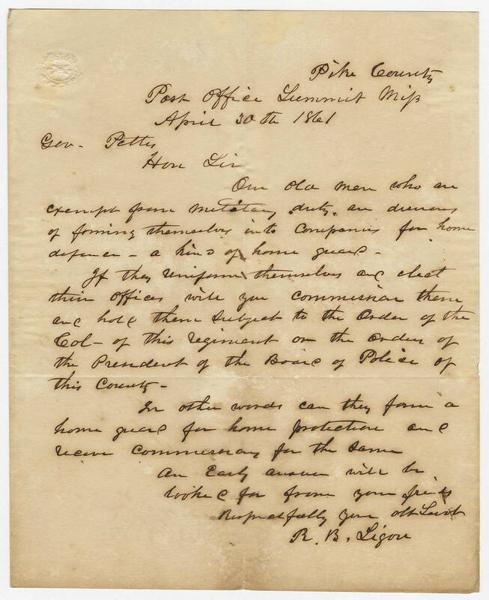 Pike County
Post Office Summit Miss
April 30th 1861
Gov. Pettus
Hon Sir
Our old men who are
exempt from military duty are desirous
of forming themselves into Companies for home
defence - a kind of home guard -
If they Uniform themselves and elect
their officers will you commission them
and hold them subject to the Order of the
Col - of this regiment or the Orders of
the President of the Board of Police of
this County -
In other words can they form a
home guard for home protection and
receive Commissions for the same
An Early answer will be
looked for from your friend
Respectfully your obt Servt
R. B. Ligon